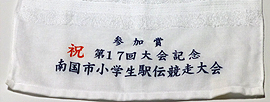 参加賞
祝 第17回大会記念
南国市小学生駅伝競走大会